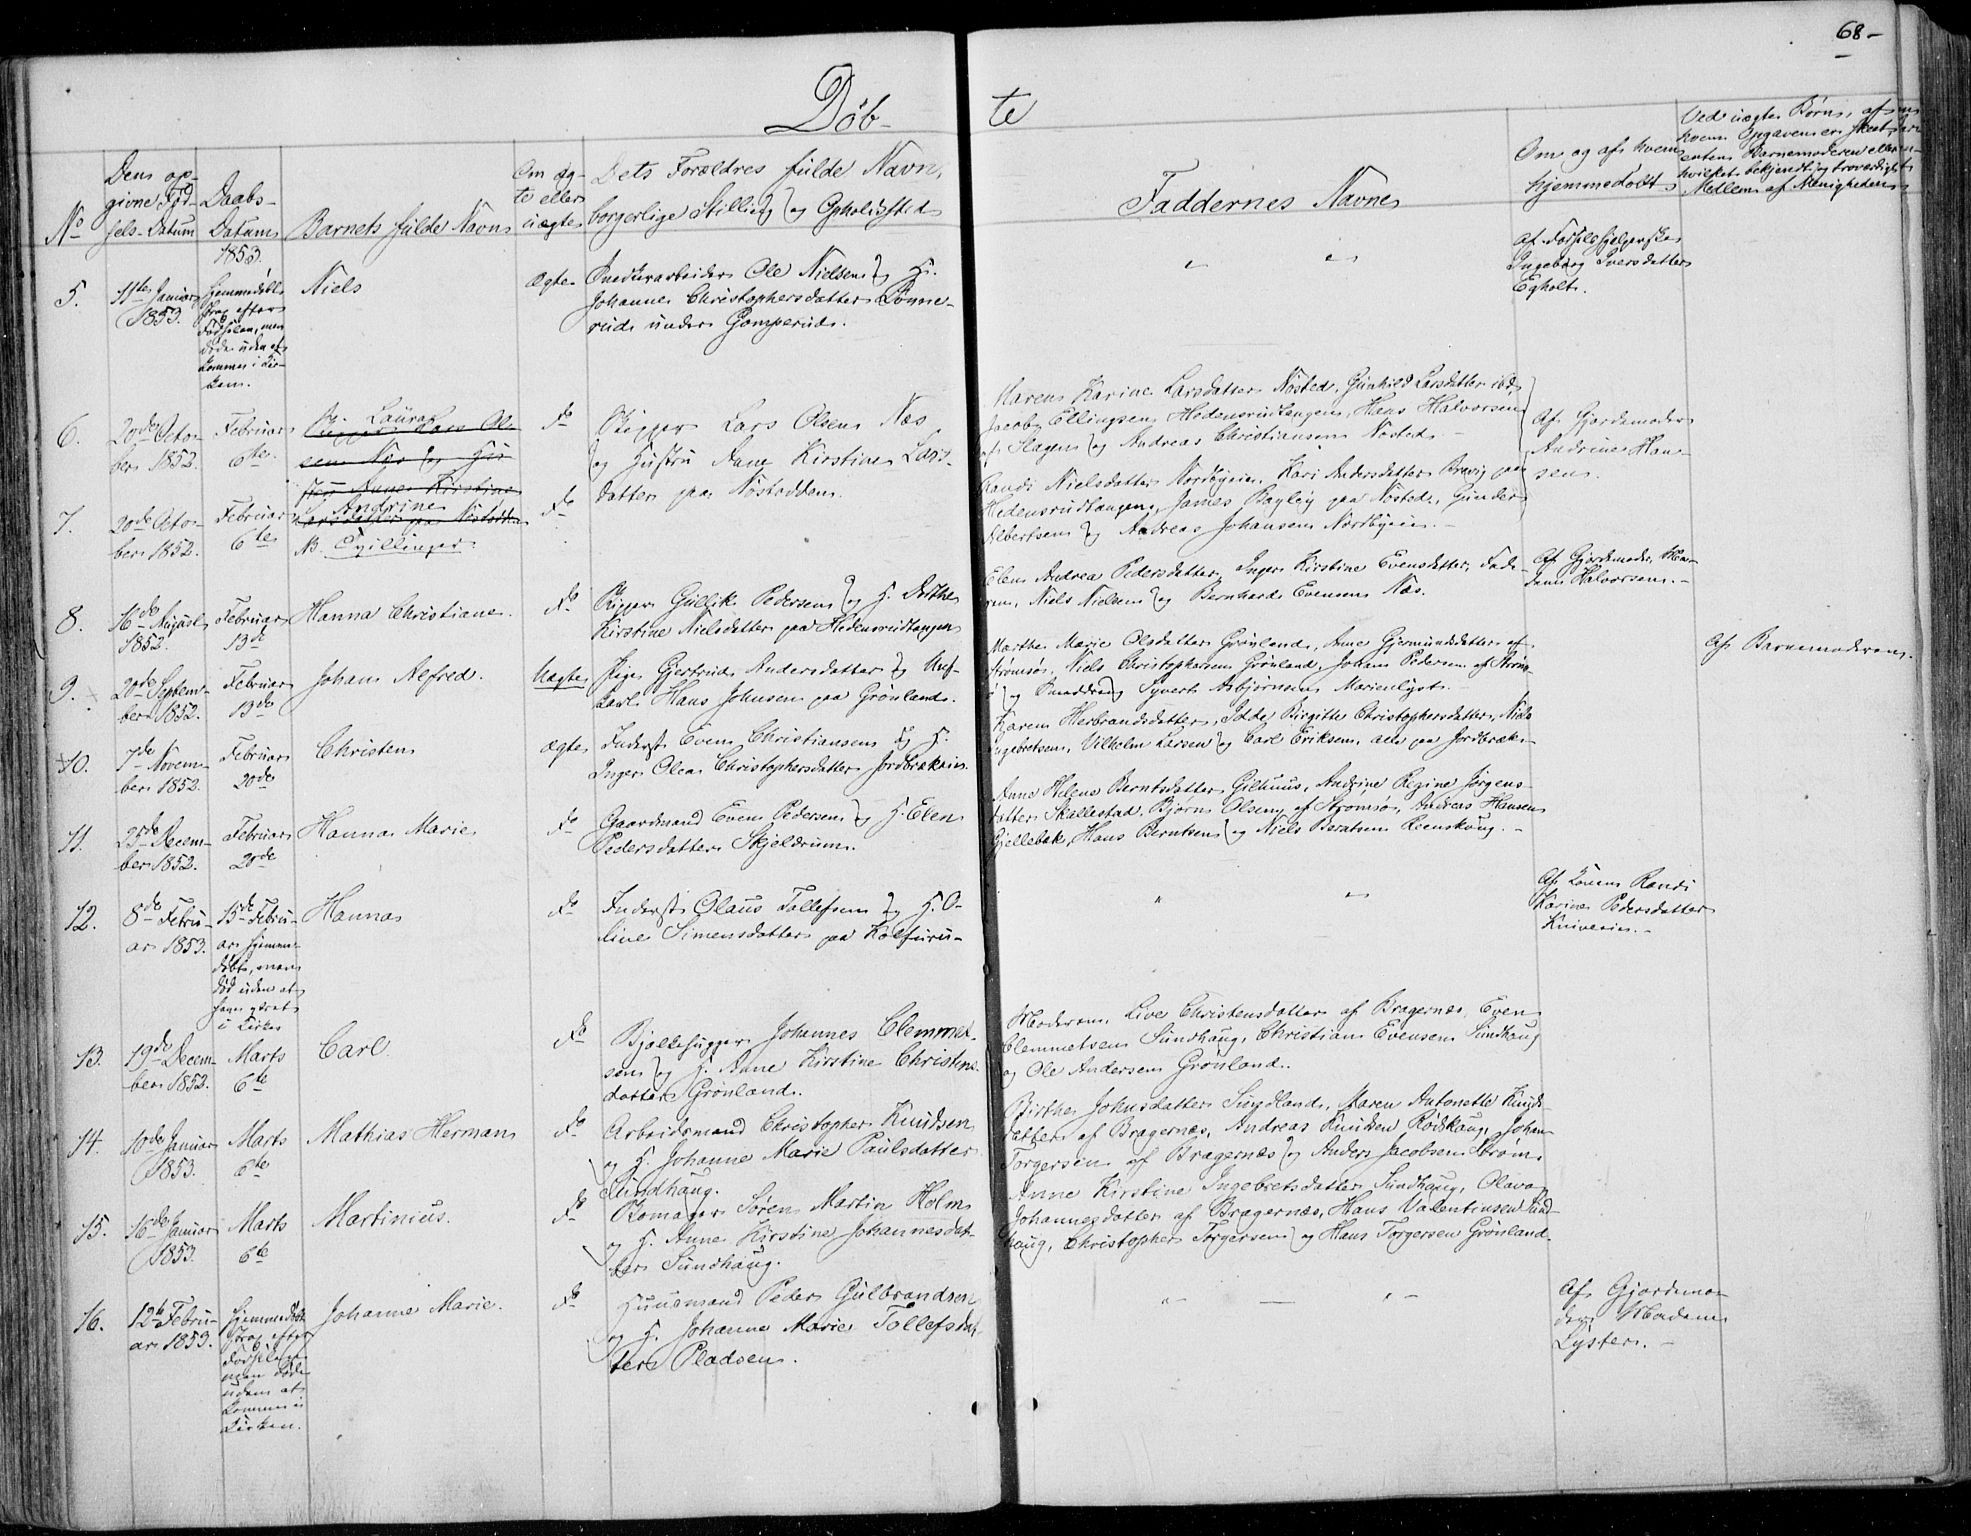 68-
Döb-
te
No
Dens op-
givne Fød-
sels-Datum
Daabs-
Datum
1853.
Barnets fulde Navn
Om æg-
te eller
uægte
Dets Forældres fulde Navn,
borgerlige Stilling og Opholdssted
Faddernes Navne
Om og af hvem
hjemmedøbt
Ved uægte Børn, af
hvem Opgaven er skeet,
enten Barnemoderen eller
hvilket bekjendt og troværdigt
Medlem af Menigheden
5.
11te Januar
1853.
Hjemmedøbt
strax efter
Fødselen, men
døde uden at
komme i Kir-
ken.
Niels
Ægte
Ole Nielsen og H.
Johanne Christophersdatter
rud under Gomperud.
Af Fødselshjelperske
Ingeborg Iversdatter
Egholt.
6.
20de Octo-
ber 1852.
Februar
6te
Laura
do
Rigger Lars Olsen Næs
og Hustru Anne Kirstine Lars-
datter paa Nøstodden.
Maren Karine Larsdatter Nøsted, Gunhild Larsdatter ibd,
Jacob Ellingsen Hedensrudtangen, Hans Halvorsen
af Hagen og Andreas Christiansen Nøsted.
Af Gjordemoder
Andrine Han-
sen.
7.
20de Octo-
ber 1852.
Februar
6te
Andrine
NB. Tvillinger.
do
Randi Nielsdatter Nordbyeien, Kari Andersdatter Brevig paa
Hedensrudtangen, James Bayley paa Nøsted, Gunder
Albertsen og Andreas Johansen Nordbyeien.
8.
16de August
1852.
Februar
13de
Hanna Christiane.
do
Rigger Gullik Pedersen og H. Dorthe
Kirstine Nielsdatter paa Hedensrudtangen
Elen Andrea Pedersdatter, Inger Kirstine Evensdatter, Fade-
ren, Niels Nielsen og Bernhard Evensen Næs.
Af Gjordemoder
Halvorsen.
9.
20de Septem-
ber 1852.
Februar
13de
Johan Alfred.
Uægte
Pige Gjertrud Andersdatter og Ung-
karl Hans Johnsen paa Grønland.
Marthe Marie Olsdatter Grønland, Anne Gjermundsdatter af
Strømsø, Niels Christophersen Grønland, Johan Pedersen af Strøm-
sø og Syvert Asbjørnsen Marienlyst.
Af Barnemoderen.
10.
7de Novem-
ber 1852.
Februar
20de
Christen
Ægte
Inderst Even Christiansen og H.
Inger Olea Christophersdatter Jordbrækeien.
Karen Herbrandsdatter, Birgitte Christophersdatter, Niels
Ingebretsen, Vilhelm Larsen og Carl Eriksen, alle paa Jordbræk-
11.
25de Decem-
ber 1852.
Februar
20de
Hanna Marie
do
Gaardmand Even Pedersen og H. Elen
Pedersdatter Skjeldrum.
Anne Helene Berntsdatter Gilhuus, Andrine Regine Jørgens-
datter Skallestad, Bjørn Olsen af Strømsø, Andreas Hansen
Gjellebæk, Hans Berntsen og Niels Berntsen Reenskoug.
12.
8de Febru-
ar 1853.
15de Febru-
ar hjemme-
døbt, men
død uden at
have været
i Kirke
Hanna
do
Inderst Olaus Tollefsen og H. O-
line Simensdatter paa
Af Konen Randi
Karine Pedersdatter
Kniveeien.
13.
19de Decem-
ber 1852.
Marts
6te
Carl
do
Bjælkehugger Johannes Clemmet-
sen og H. Anne Kirstine Christens-
datter Grønland.
Moderen, Live Christensdatter af Bragernæs, Even
Clemmetsen Sundhaug, Christian Evensen Sundhaug
og Ole Andersen Grønland.
14.
10de Januar
1853.
Marts
6te
Mathias Herman
do
Arbeidsmand Christopher Knudsen
og H. Johanne Marie Paulsdatter
Sundhaug.
Birthe Johnsdatter Sundland, Maren Antonette Knuds-
datter af Bragernæs, Andreas Knudsen Rødskaug, Johan
Torgersen af Bragernæs og Anders Jacobsen Strøm.
15.
16de Januar
1853.
Marts
6te
Martinius.
do
Søren Martin Holm
og H. Anne Kirstine Johannesdat-
ter Sundhaug.
Anne Kirstine Ingebretsdatter Sundhaug, Olava
Johannesdatter af Bragernæs, Hans Valentinsen Sund-
haug, Christopher Torgersen og Hans Torgersen Grønland.
16.
12te Febru-
ar 1853.
Hjemmedøbt
strax efter
Fødselen
men døde
uden at
komme i
Kirken.
Johanne Marie.
do
Huusmand Peder Gulbrandsen
og H. Johanne Marie Tollefsdat-
ter Pladsen.
Af Gjordemo-
der Madam
Lyster.